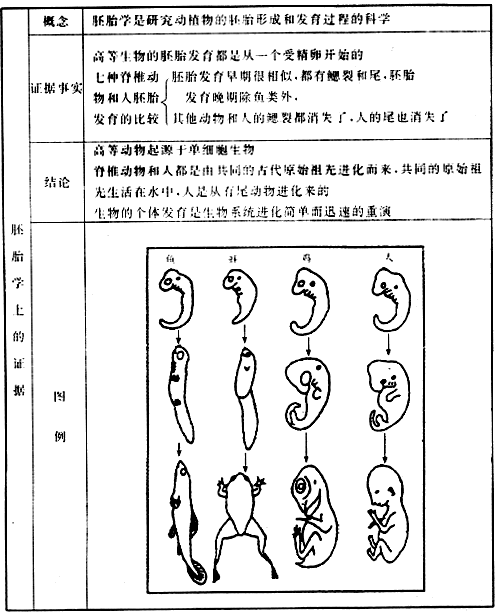 胚胎学上的证据
概念
胚胎学是研究动植物的胚胎形成和发育过程的科学
证据事实
高等生物的胚胎发育都是从一个受精卵开始的
七种脊椎动物和人胚胎发育的比较
胚胎发育早期很相似,都有鳃裂和尾,胚胎
发育晚期除鱼类外,
其他动物和人的鳃裂都消失了,人的尾也消失了
结论
高等动物起源于单细胞生物
脊椎动物和人都是由共同的古代原始祖先进化而来,共同的原始祖
先生活在水中,人是从有尾动物进化来的
生物的个体发育是生物系统进化简单而迅速的重演
图例
鱼 蛙 鸡 人